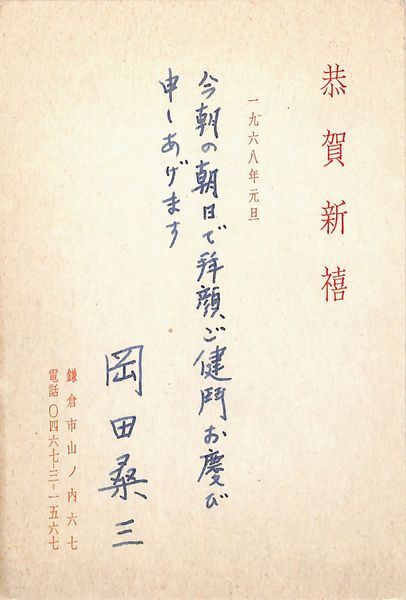 恭賀新禧
一九六八年元旦
今朝の朝日で拝顔、ご健鬥お慶び
申しあげます
岡田桑三
鎌倉市山ノ内六七
電話〇四六七-三-一五六七